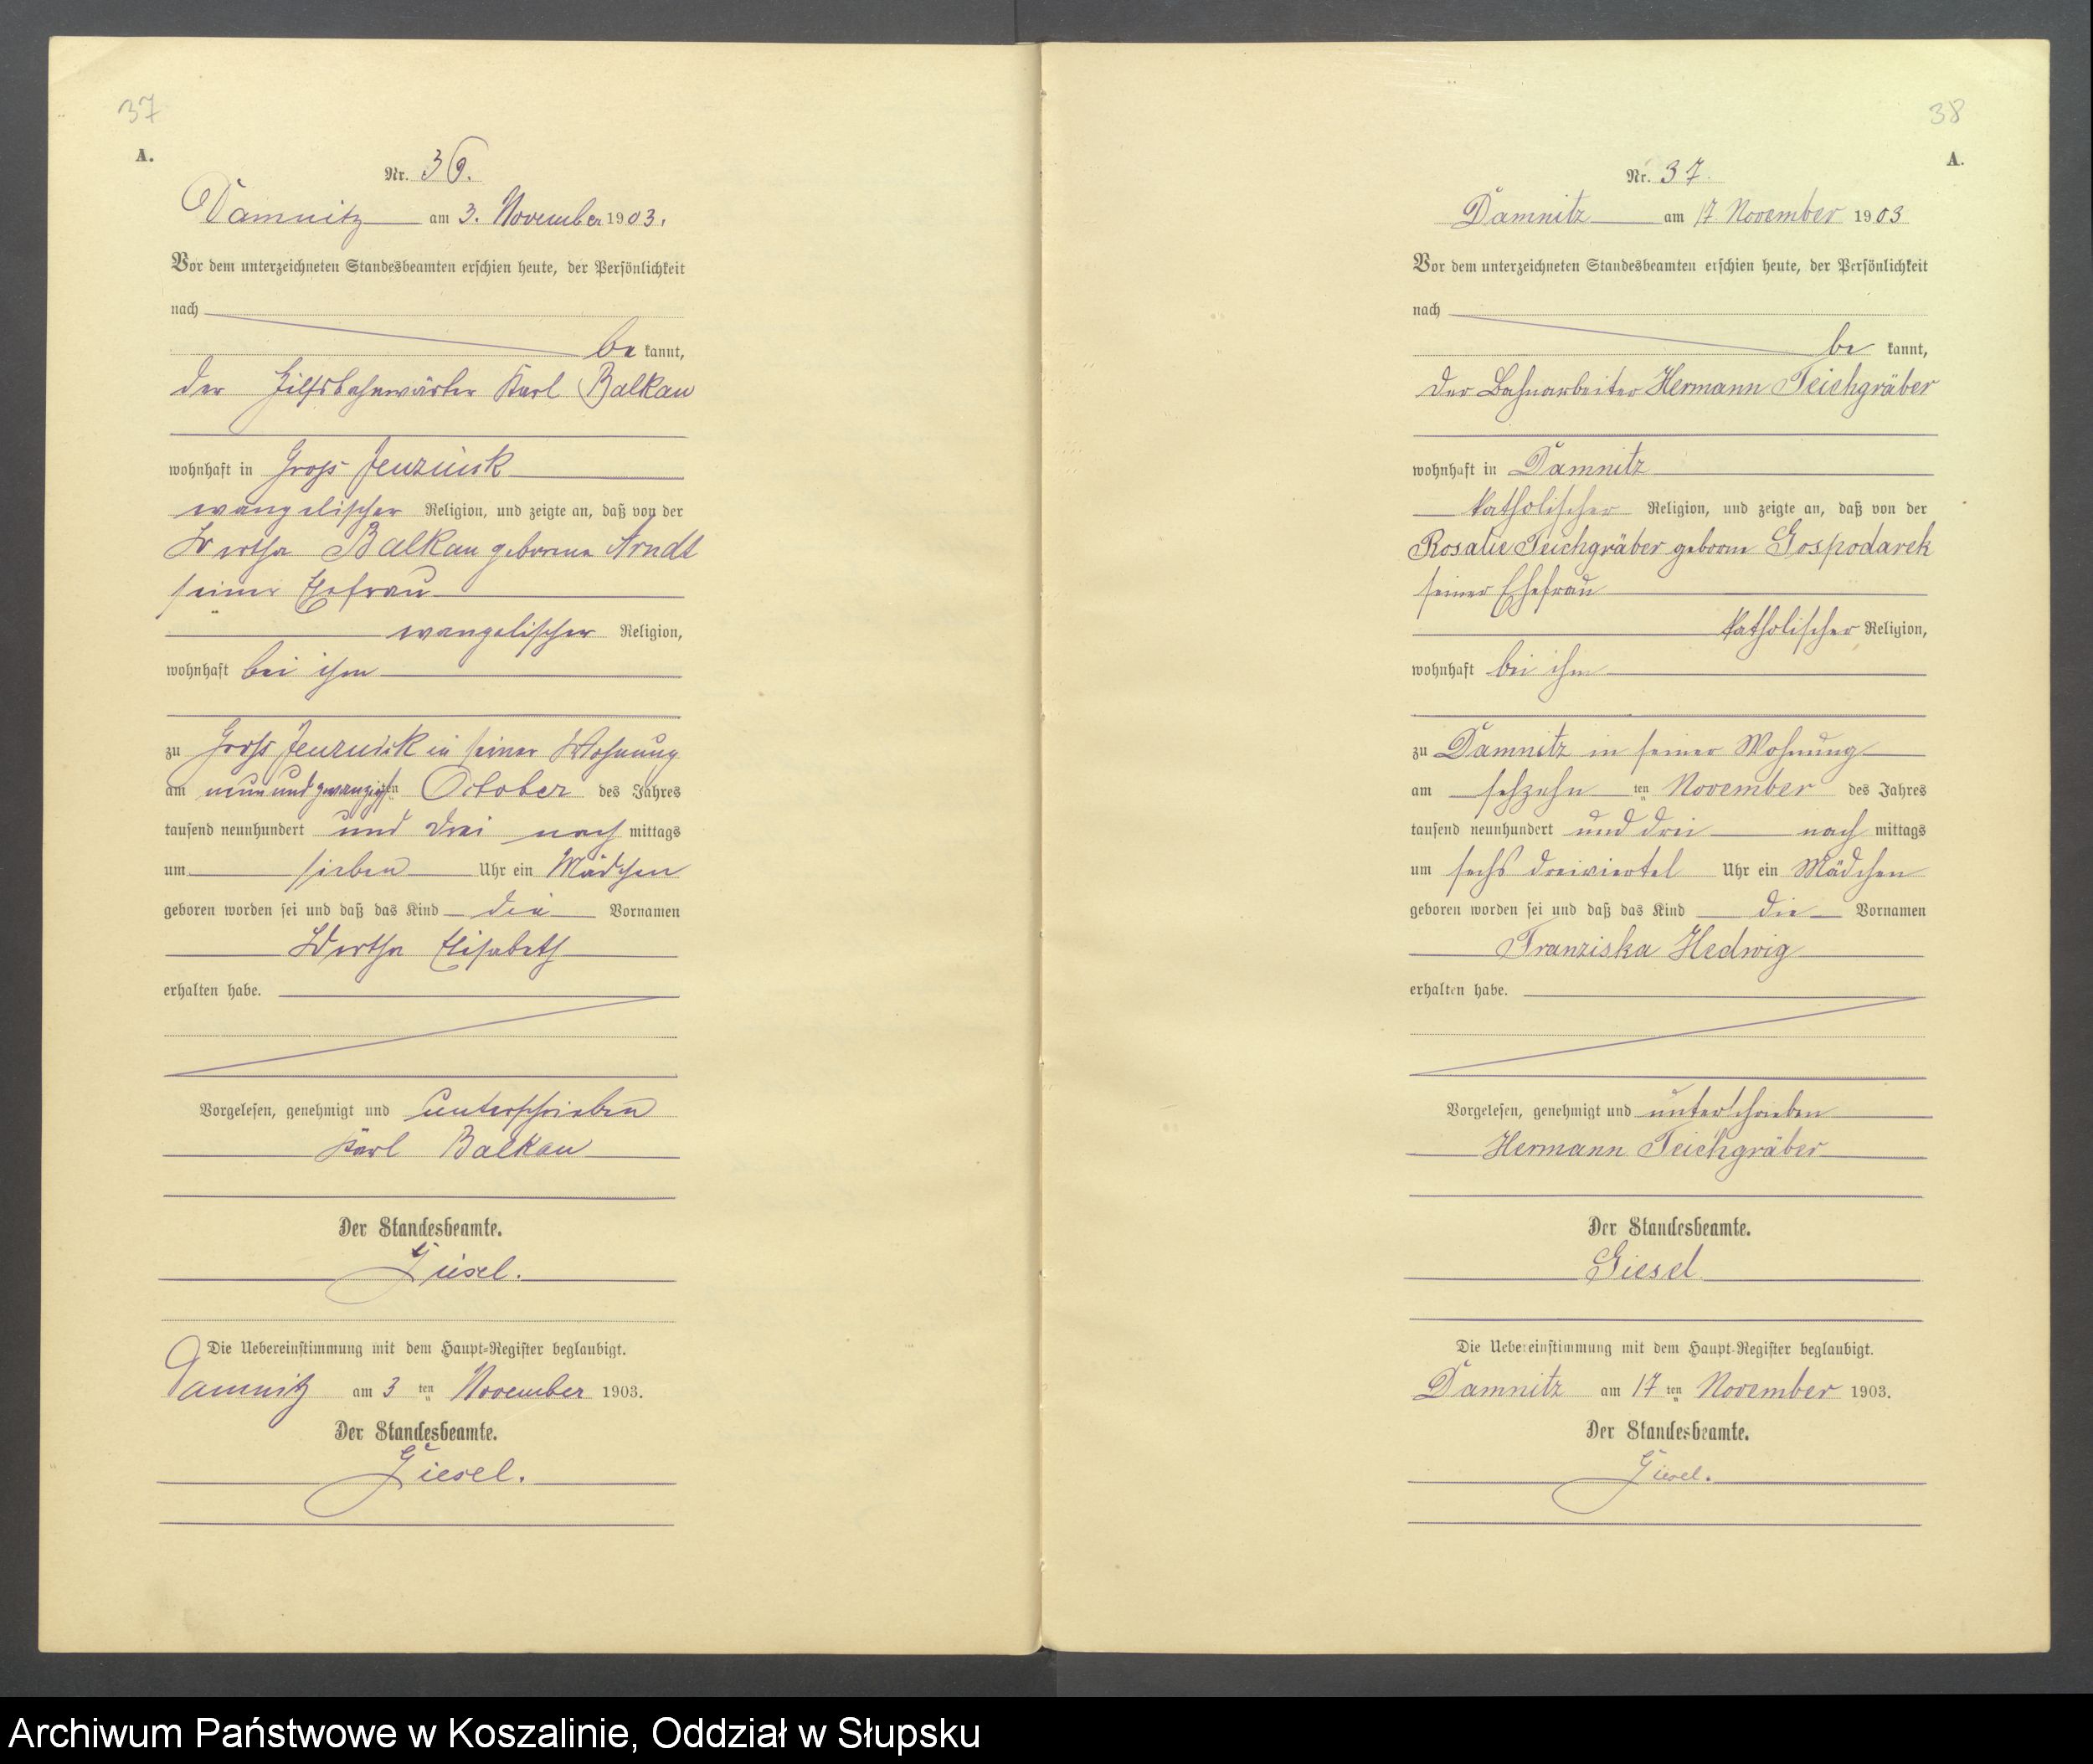 37
A.
Nr. 36.
Damnitz am 3. November 1903.
Vor dem unterzeichneten Standesbeamten erschien heute, der Persönlichkeit
nach
be kannt,
der Hilfsbahnwärter Karl Balkau
wohnhaft in Gross Jenznick
evangelischer Religion, und zeigte an, daß von der
Bertha Balkau geborene Arndt
seiner Ehefrau
evangelischer Religion,
wohnhaft bei ihm
zu Gross Jenznick in seiner Wohnung
am neunundzwanzigsten October des Jahres
tausend neunhundert und drei nach mittags
um sieben Uhr ein Mädchen
geboren worden sei und daß das Kind die Vornamen
Bertha Elisabeth
erhalten habe.
Vorgelesen, genehmigt und unterschrieben
Karl Balkau
Der Standesbeamte.
Giesel.
Die Uebereinstimmung mit dem Haupt-Register beglaubigt.
Damnitz am 3 ten November 1903.
Der Standesbeamte.
Giesel.
38
A.
Nr. 37.
Damnitz am 17 November 1903
Vor dem unterzeichneten Standesbeamten erschien heute, der Persönlichkeit
nach
be kannt,
der Bahnarbeiter Hermann Teichgräber
wohnhaft in Damnitz
katholischer Religion, und zeigte an, daß von der
Rosalie Teichgräber geborne Gospodarek
seiner Ehefrau
katholischer Religion,
wohnhaft bei ihm
zu Damnitz in seiner Wohnung
am sehzehn ten November des Jahres
tausend neunhundert und drei nach mittags
um sechs dreiviertel Uhr ein Mädchen
geboren worden sei und daß das Kind die Vornamen
Franziska Hedwig
erhalten habe.
Vorgelesen, genehmigt und unterschrieben
Hermann Teichgräber
Der Standesbeamte.
Giesel
Die Uebereinstimmung mit dem Haupt-Register beglaubigt.
Damnitz am 17 ten November 1903.
Der Standesbeamte.
Giesel.
Archiwum Państwowe w Koszalinie, Oddział w Słupsku